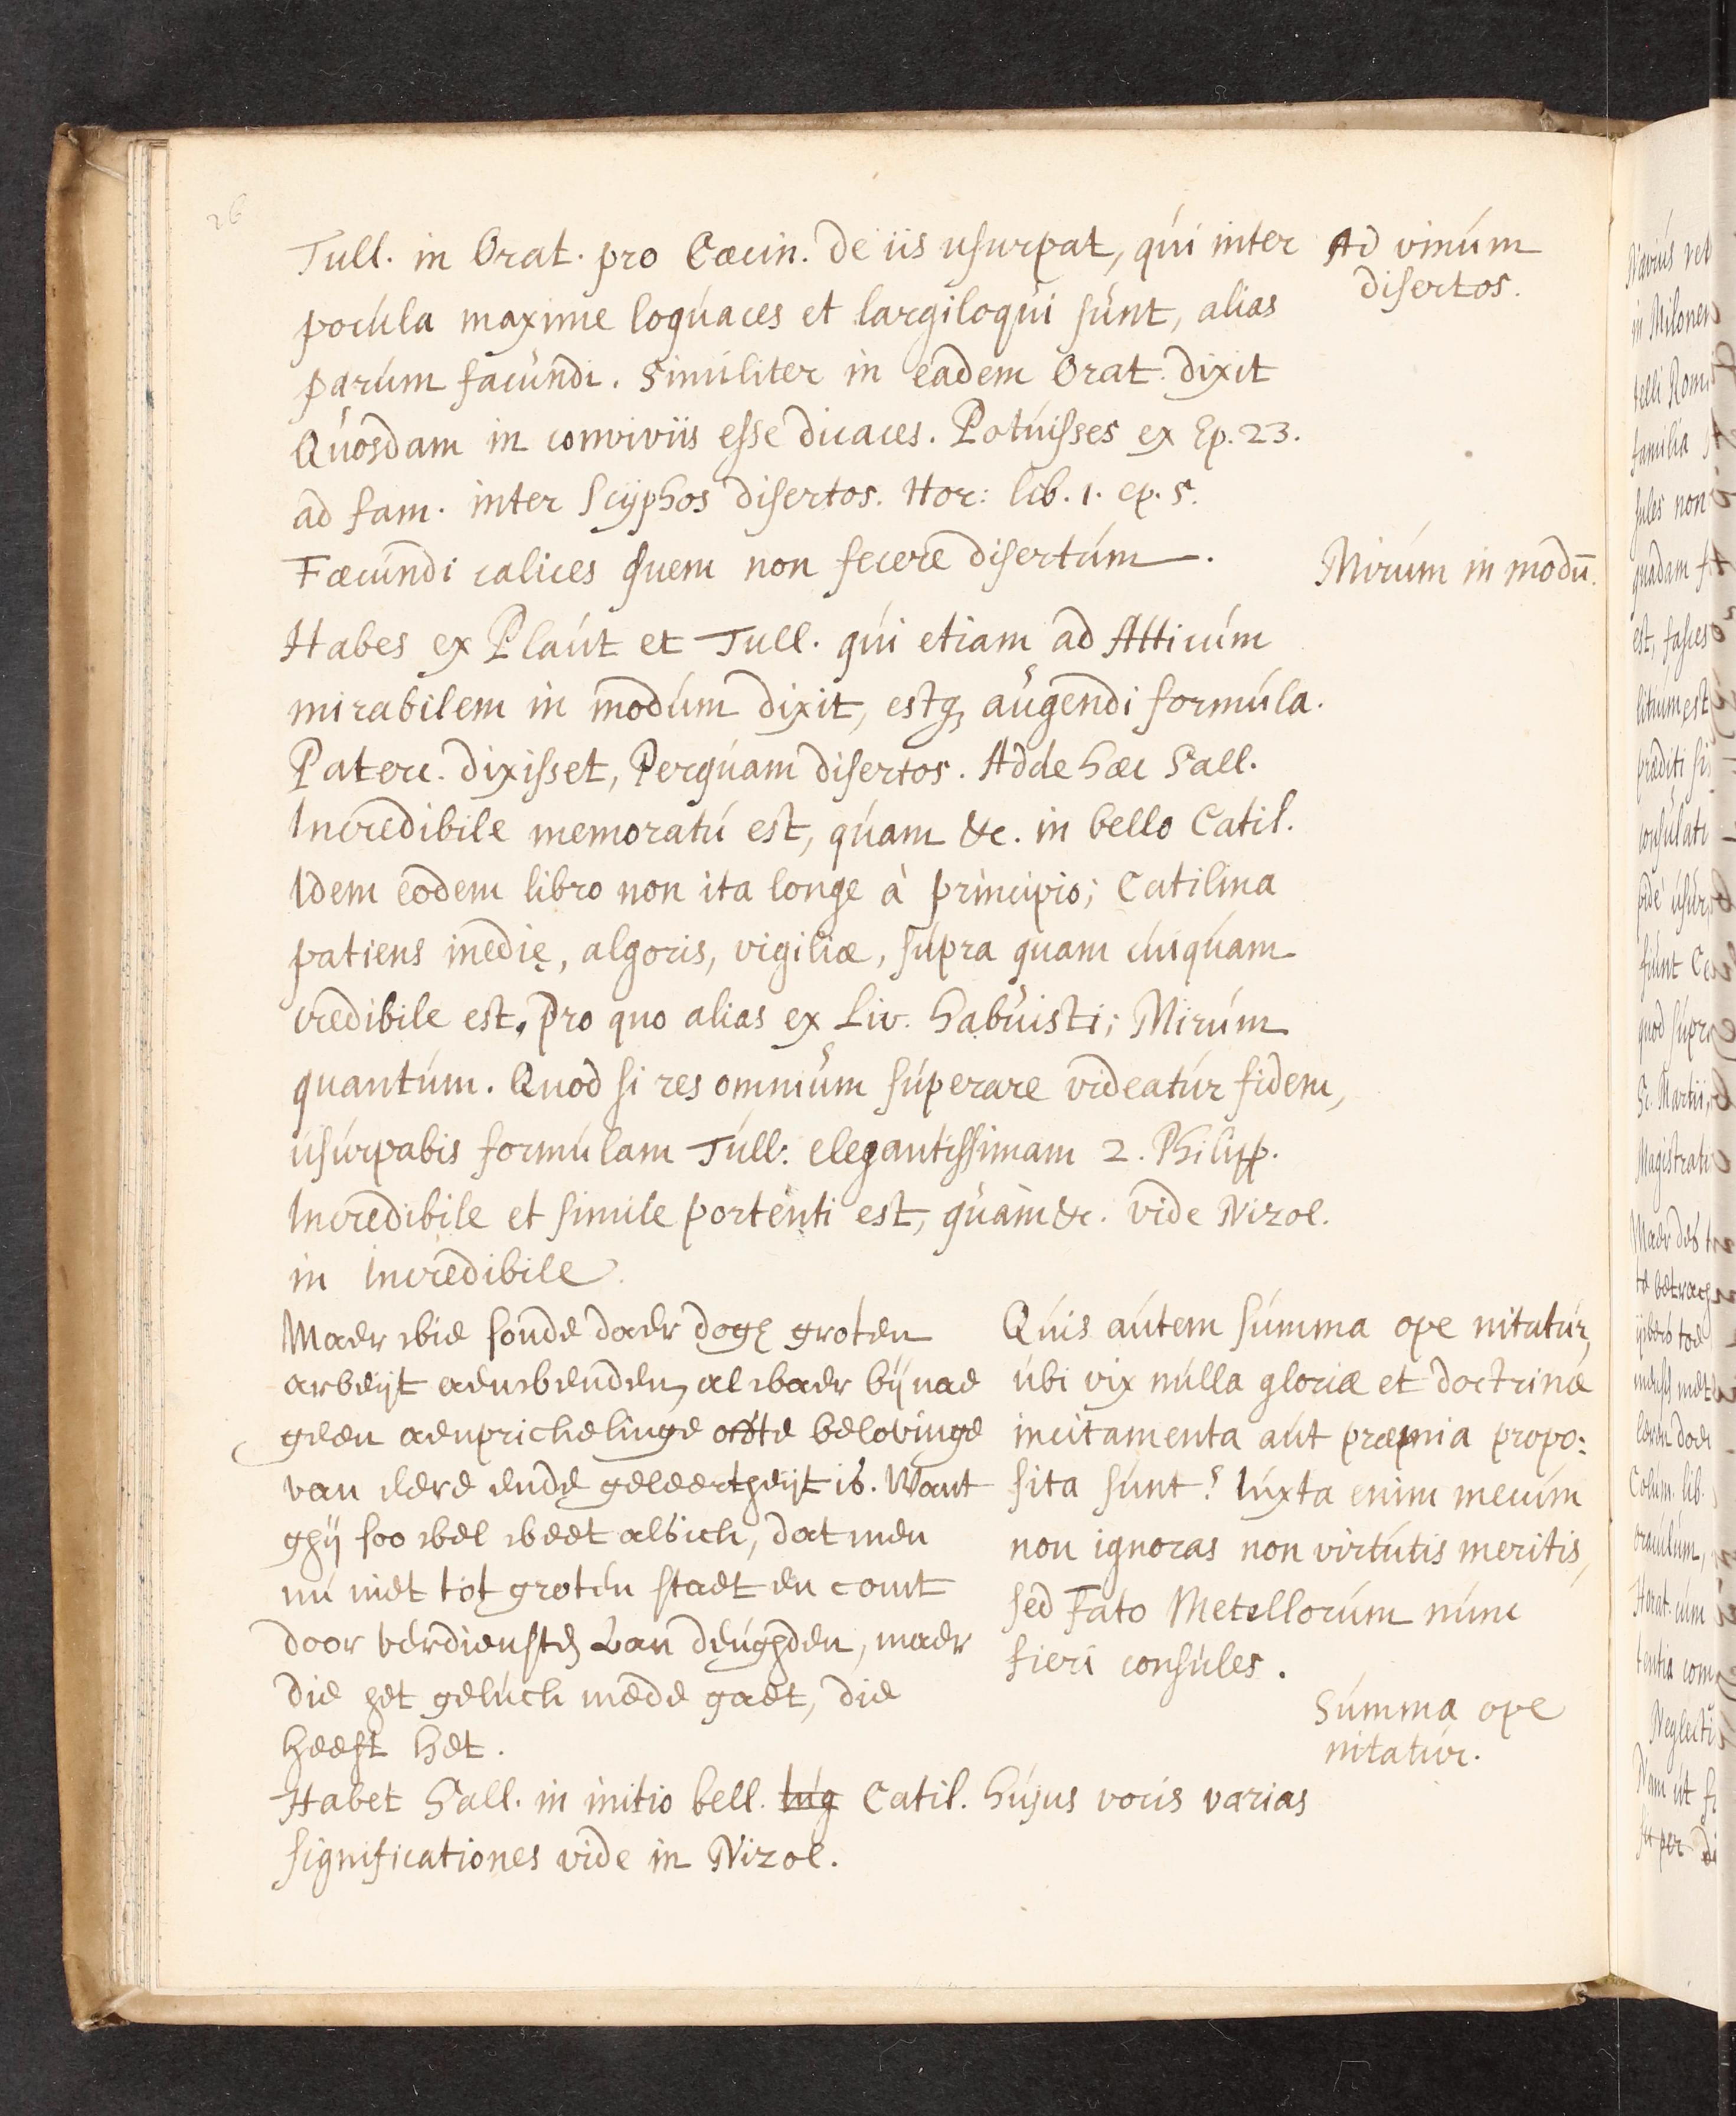 26
Tull. in Orat. pro Cæcin. de iis usurpat, qui inter
pocula maxime loquaces et largiloqui sunt, alias
parum facundi. Similiter in eadem Orat. dixit
Quosdam in conviviis esse dicaces. Potuisses ex Ep. 23.
ad fam. inter Scyphos disertos. Hor: lib. 1. ep. 5.
Fæcundi calices quem non fecere disertum.
Ad vinum
disertos.
Habes ex Plaut et Tull. qui etiam ad Atticum
mirabilem in modum dixit, estq, augendi formula.
Paterc. dixisset, Perquam disertos. Adde hæc Sall.
Incredibile memoratu est, quam &c. in bello Catil.
Idem eodem libro non ita longe à principio; Catilina
patiens inedię, algoris, vigiliæ, supra quam cuiquam
credibile est, pro quo alias ex Liv. habuisti; Mirum
quantum. Quod si res omnium superare videatur fidem,
usurpabis formulam Tull: elegantissimam 2. Philipp.
Incredibile et simile portenti est, quam &c. vide Nizol.
in incredibile.
Mirum in modū.
Maer wie soude daer doge groten
arbeijt aenwenden, al waer bijnae
geen aenprickelinge ofte belovinge
van eere ende geleertheijt is. Want
ghij soo wel weet als ick, dat men
nu niet tot groten staet en comt
door verdiensten van deughden, maer
die het geluck mede gaet, die
heeft het.
Quis autem summa ope nitatur,
ubi vix nulla gloriæ et doctrinæ
incitamenta aut præmia propo:
sita sunt? Iuxta enim mecum
non ignoras non virtutis meritis,
sed Fato Metellorum nunc
fieri consules.
Summa ope
nitatur.
Habet Sall. in initio bell. Iug Catil. hujus vocis varias
significationes vide in Nizol.